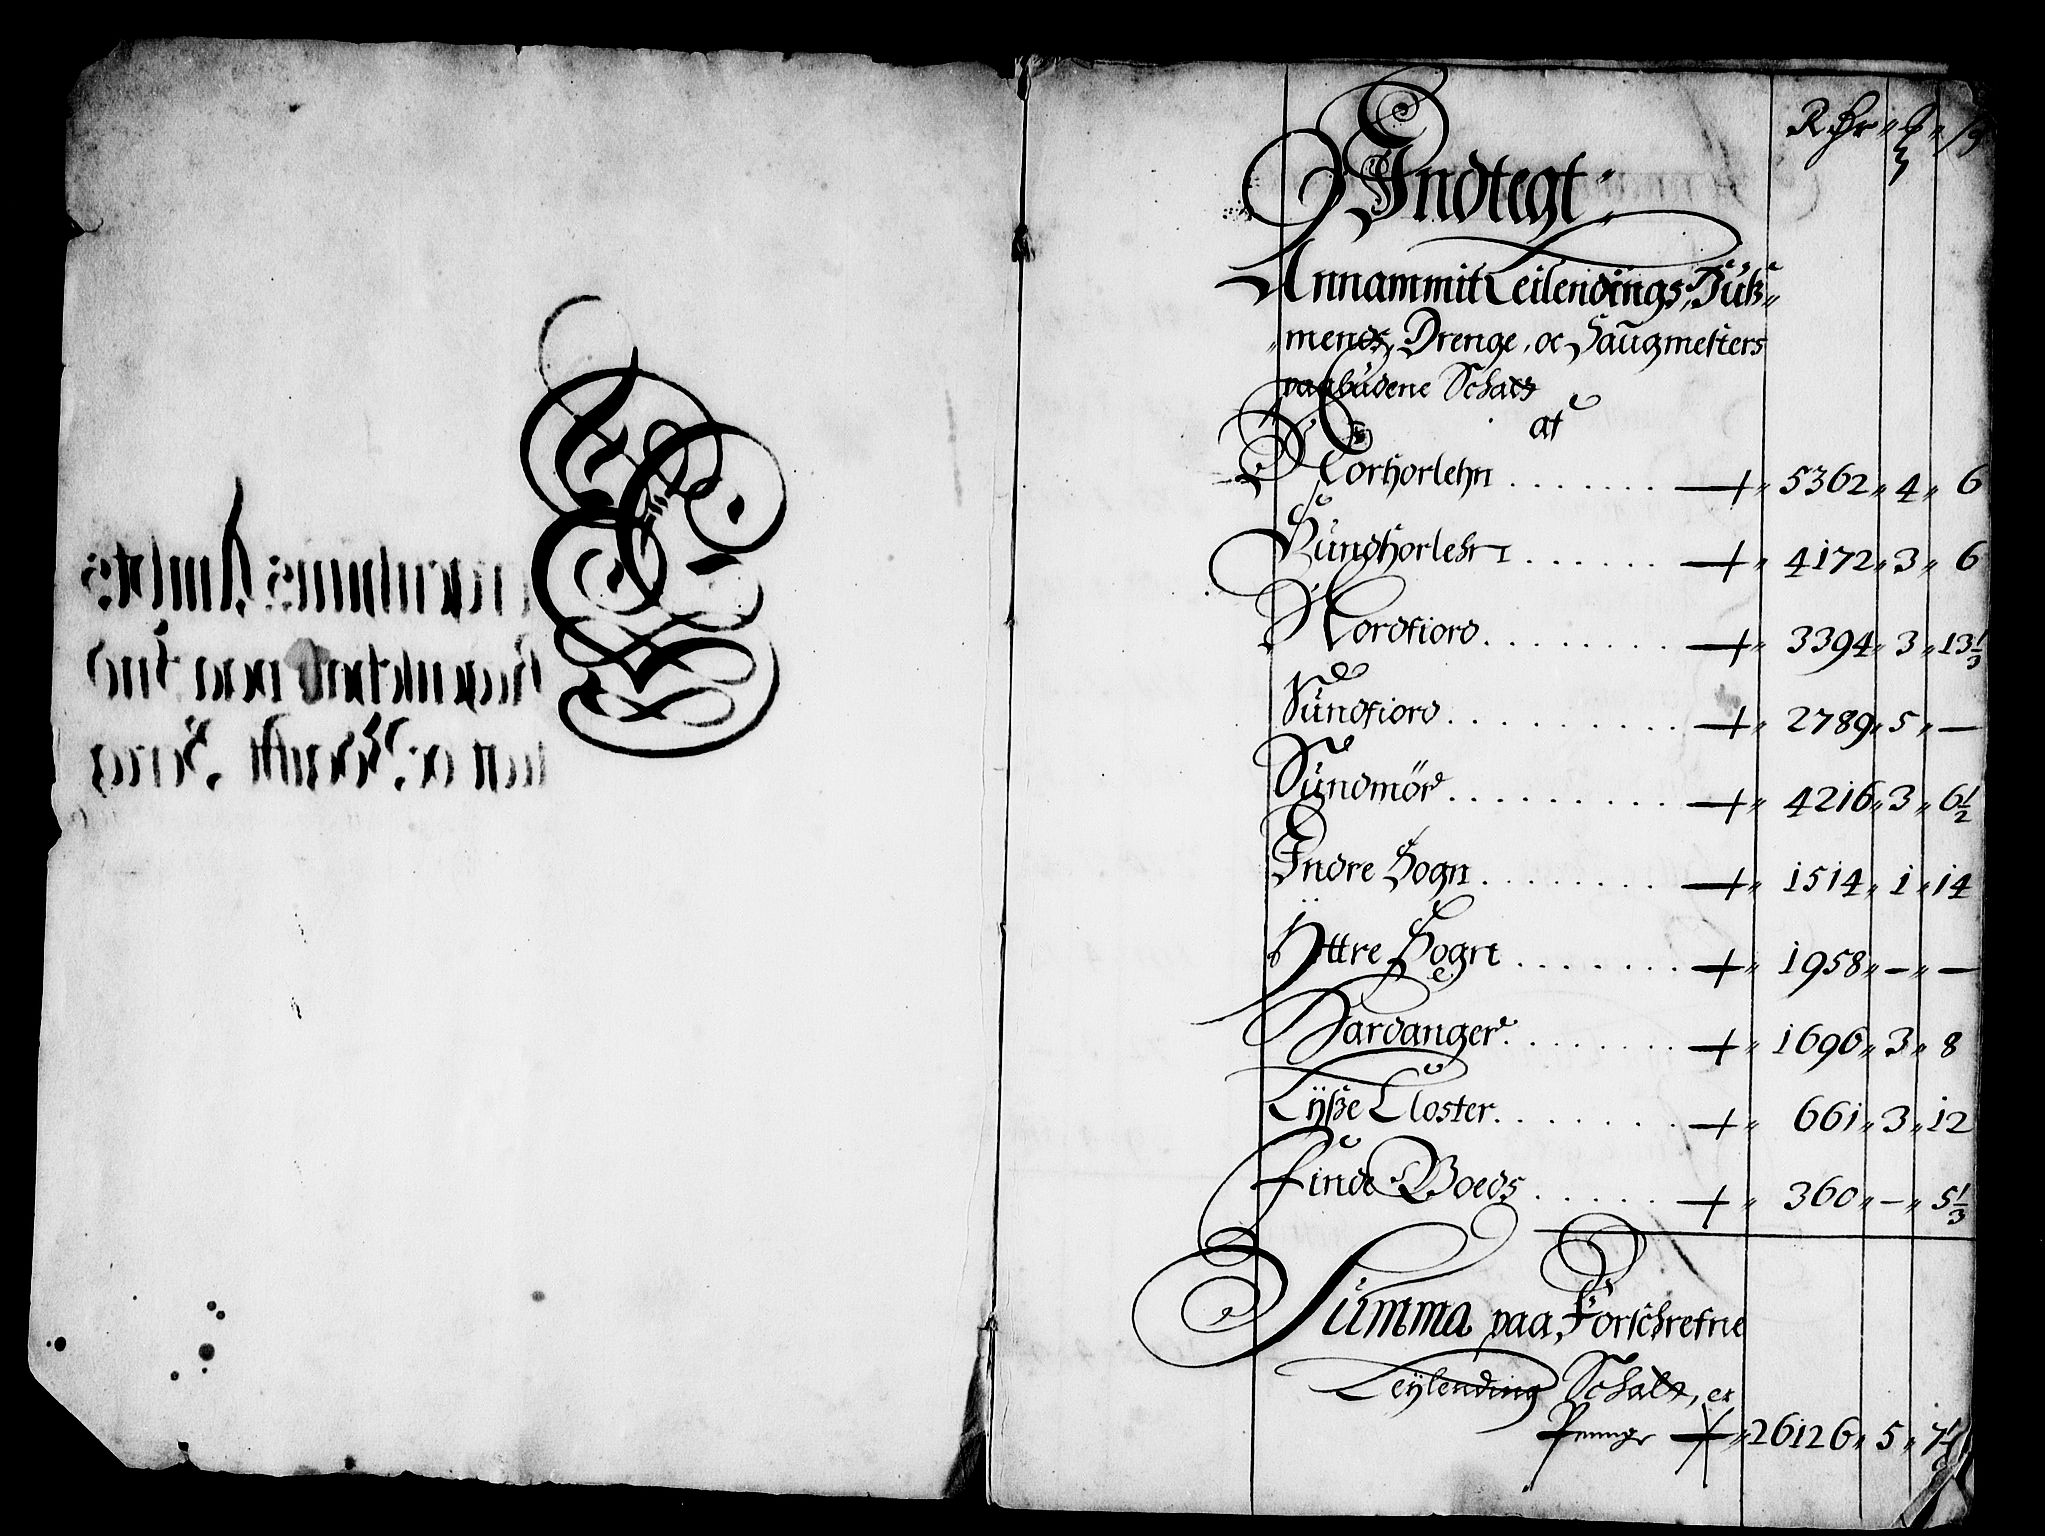 R dr „ ȝ „ ß
Indtegt
Annammit Leilendings, Huß„
„mends, Drenge, oc Saugmesters
paabudene Schatt
af
Norhorlehn . . . . . . . „ 5362 „ 4 „ 6
Sundhorlehn . . . . . . „ 4172 „ 3 „ 6
Nordfiord . . . . . . . . „ 3394 „ 3 „ 13 1/3
Sundfiord . . . . . . . . . . „ 2789 „ 5 „ —
Sundmör . . . . . . . . . . „ 4216 „ 3 „ 6 1/2
Indre Sogn . . . . . . . . „ 1514 „ 1 „ 14
Ÿttre Sogn . . . . . . . „ 1958 „ — „ —
Hardanger . . . . . . . . „ 1696 „ 3 „ 8
Lÿße Closter . . . . . . . . „ 661 „ 3 „ 12
Finde Goeds . . . . . . „ 360 „ — „ 5 1/3
Summa paa, Forschrefne
Leÿlending Schatt, er
Penninge „ 26126 „ 5 „ 7